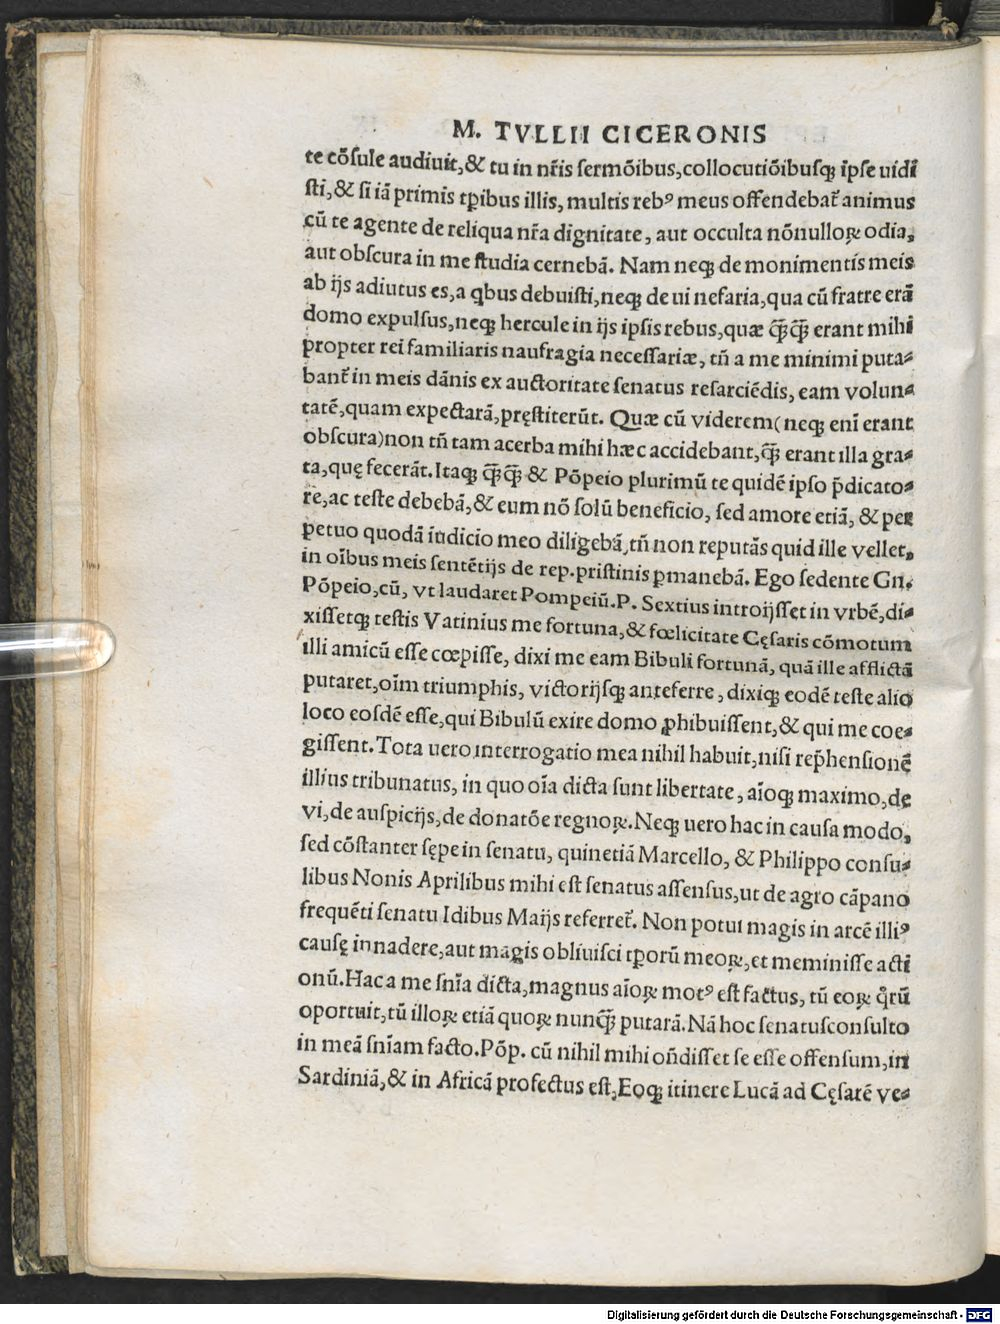 M. TVLLII CICERONIS
te cõſule audiuit,& tu in nr̃is ſermõibus,collocutiõibuſqꝫ ip̃e uidi
ſti,& ſi iã primis tꝑibus illis, multis rebꝰ meus offendebat᷑ animus
cũ te agente de reliqua nr̃a dignitate, aut occulta nõnulloꝝ odia,
aut obſcura in me ſtudia cernebã. Nam neqꝫ de monimentis meis
ab ijs adiutus es,a qbus debuiſti,neqꝫ de ui nefaria,qua cũ fratre erã
domo expulſus,neqꝫ hercule in ijs ipſis rebus,quæ q̃ꝫq̃ꝫ erant mihi
propter rei familiaris naufragia neceſſariæ, tñ a me minimi puta⸗
bant᷑ in meis dãnis ex auctoritate ſenatus reſarciẽdis, eam volun⸗
tatẽ,quam expectarã,pręſtiterũt. Quæ cũ viderem(neqꝫ enĩ erant
obſcura)non tñ tam acerba mihi hæc accidebant,q̃ꝫ erant illa gra⸗
ta,quę fecerãt.Itaqꝫ q̃ꝫq̃ꝫ & Põpeio plurimũ te quidẽ ipſo p̃dicato⸗
rẽ,ac teſte debebã,& eum nõ ſolũ beneficio, ſed amore etiã, & per
petuo quodã iudicio meo diligebã,tñ non reputãs quid ille vellet,
in oĩbus meis ſentẽtijs de rep.priſtinis ꝑmanebã. Ego ſedente Gn.
Põpeio,cũ, vt laudaret Pompeiũ.P. Sextius introijſſet in vrbẽ,di⸗
xiſſetqꝫ teſtis Vatinius me fortuna,& fœlicitate Cęſaris cõmotum
illi amicũ eſſe cœpiſſe, dixi me eam Bibuli fortunã, quã ille afflictã
putaret,oĩm triumphis, victorijſqꝫ anteferre, dixiqꝫ eodẽ teſte alio
loco eoſdẽ eſſe,qui Bibulũ exire domo ꝓhibuiſſent,& qui me coe⸗
giſſent.Tota uero interrogatio mea nihil habuit,niſi rep̃henſionẽ
illius tribunatus, in quo oĩa dicta ſunt libertate, aĩoqꝫ maximo,de
vi,de auſpicijs,de donatõe regnoꝝ.Neqꝫ uero hac in cauſa modo,
ſed cõſtanter ſępe in ſenatu, quinetiã Marcello, & Philippo conſu⸗
libus Nonis Aprilibus mihi eſt ſenatus aſſenſus,ut de agro cãpano
frequẽti ſenatu Idibus Maijs referret᷑. Non potui magis in arcẽ illiꝰ
cauſę innadere,aut magis obliuiſci tꝑorũ meoꝝ,et meminiſſe acti
onũ.Hac a me ſnĩa dicta,magnus aĩoꝝ motꝰ eſt factus, tũ eoꝝ qͦrũ
oportuit,tũ illoꝝ etiã quoꝝ nunq̃ꝫ putarã.Nã hoc ſenatuſconſulto
in meã ſnĩam facto.Põp. cũ nihil mihi oñdiſſet ſe eſſe offenſum,in
Sardiniã,& in Africã profectus eſt,Eoqꝫ itinere Lucã ad Cęſarẽ ve⸗
Digitalisierung gefördert durch die Deutsche Forschungsgemeinschaft - DFG